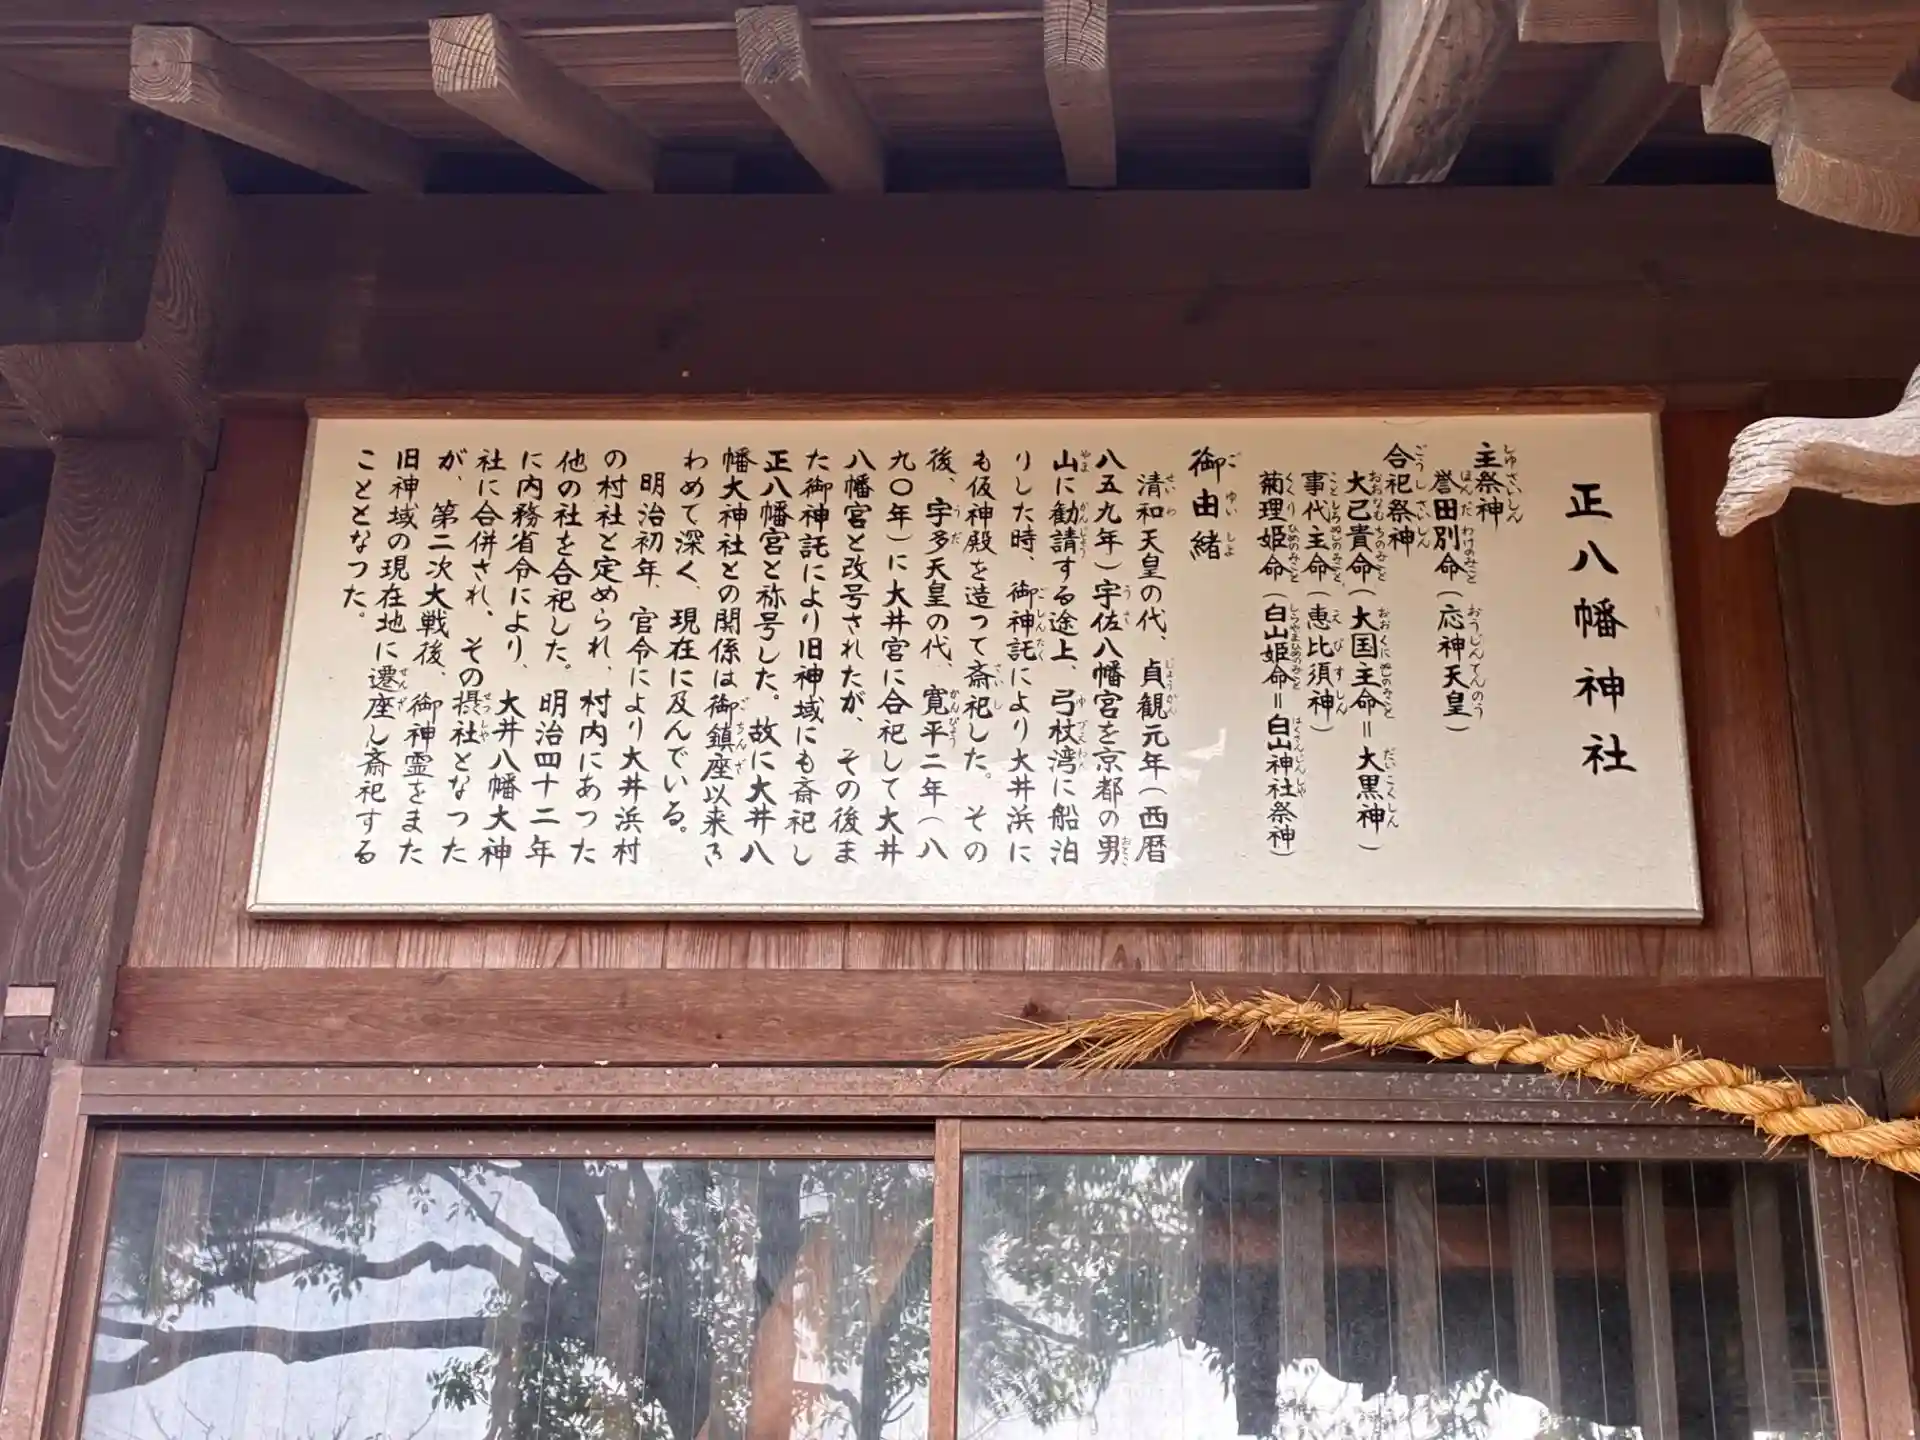 正八幡神社
主祭神
誉田別命（応神天皇）
合祀祭神
大己貴命（大国主命＝大黒神）
事代主命（恵比須神）
菊理姫命（白山姫命＝白山神社祭神）
御由緒
清和天皇の代、貞観元年（西暦
八五九年）宇佐八幡宮を京都の男
山に勧請する途上、弓杖湾に船泊
りした時、御神託により大井浜に
も仮神殿を造って斎祀した。その
後、宇多天皇の代、寛平二年（八
九〇年）に大井宮に合祀して大井
八幡宮と改号されたが、その後ま
た御神託により旧神域にも斎祀し
正八幡宮と称号した。故に大井八
幡大神社との関係は御鎮座以来き
わめて深く、現在に及んでいる。
明治初年、官令により大井浜村
の村社と定められ、村内にあった
他の社を合祀した。明治四十二年
に内務省令により、大井八幡大神
社に合併され、その摂社となった
が、第二次大戦後、御神霊をまた
旧神域の現在地に遷座し斎祀する
こととなった。